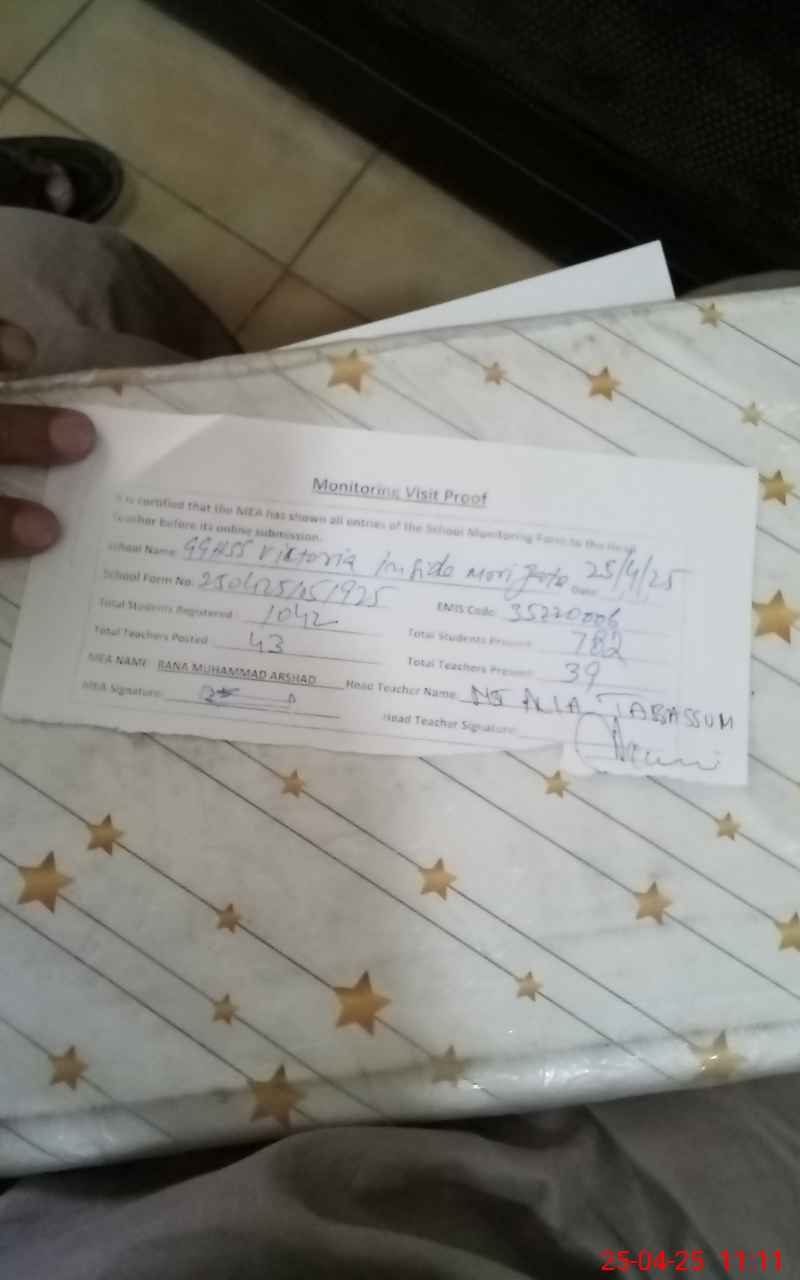 Monitoring Visit Proof
It is certified that the MEA has shown all entries of the School Monitoring Form to the Head
Teacher before its online submission.
School Name: GGHSS Victoria Inside Mori Gate Date: 25/4/25
School Form No: EMIS Code: 35220006
Total Students Registered 1042 Total Students Present 782
Total Teachers Posted 43 Total Teachers Present 39
MEA NAME: RANA MUHAMMAD ARSHAD Head Teacher Name: ALIA TABASSUM
MEA Signature: Head Teacher Signature:
25-04-25 11:11